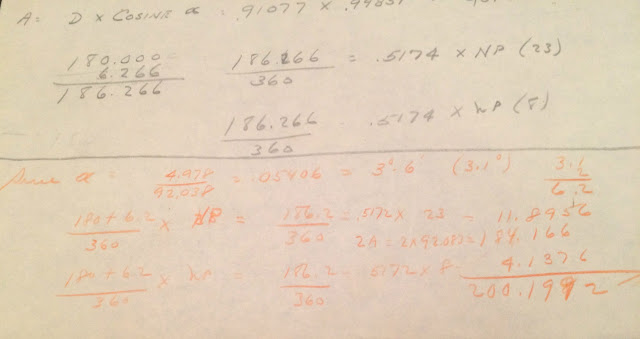 A = D × COSINE α = .91077 × .99851
180.000
6.266
186.266
186.266 / 360 = .5174 × NP (23)
186.266 / 360 .5174 × NP (8)
Sine α = 4.978 / 92.038 = .05406 = 3° 6' (3.1°)
3.1
2
6.2
180 + 6.2 / 360 × NP = 186.2 / 360 = .5172 × 23 = 11.8956
2A = 2 × 92083 = 184.166
180 + 6.2 / 360 × NP = 186.2 / 360 = .5172 × 8 4.1376
200.1992